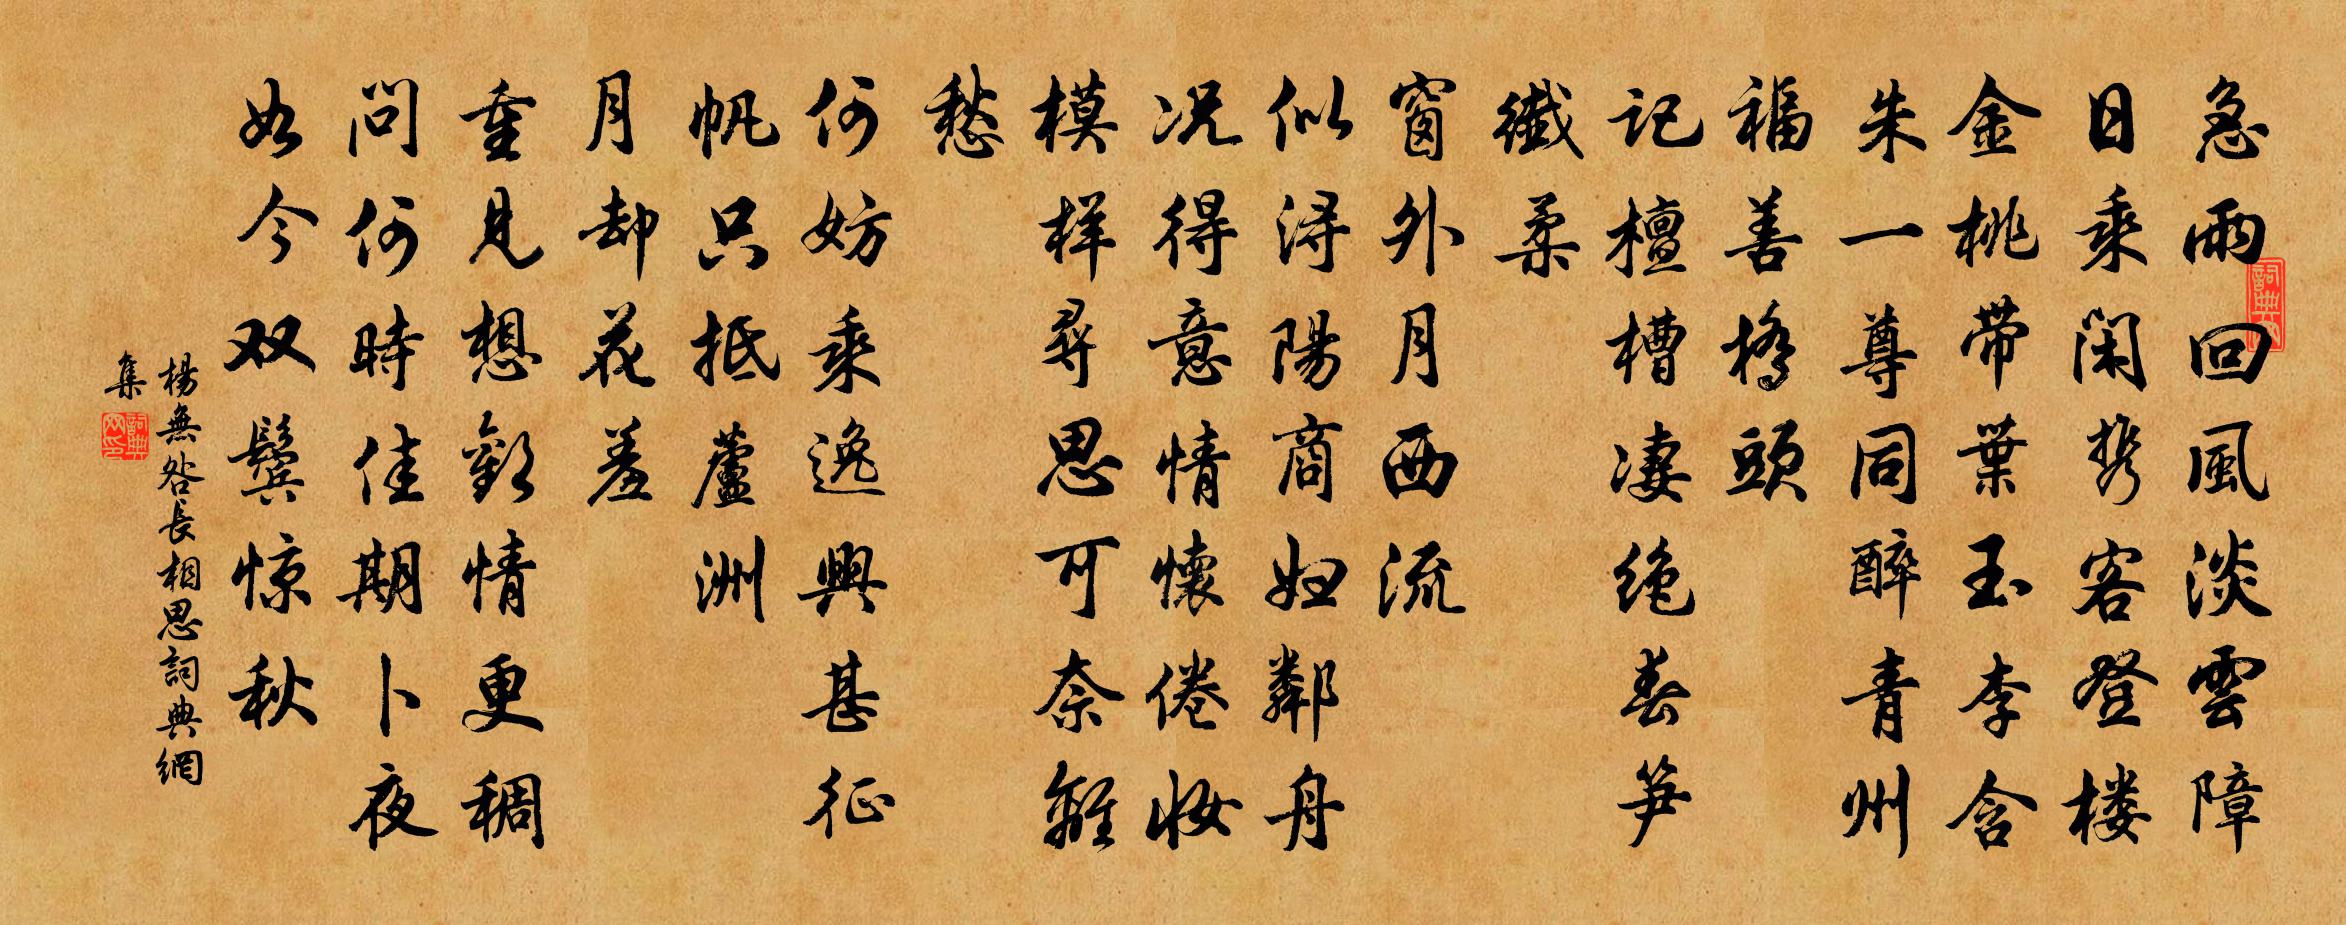 急雨回風淡雲障
日乘闲携客登楼
金桃帶葉玉李含
朱一尊同醉青州
福善橋頭
记檀槽凄绝春笋
纖柔
窗外月西流
似浔陽商妇鄰舟
况得意情懷倦妝
模样尋思可奈離
愁
何妨乘逸興甚征
帆只抵蘆洲
月却花羞
重見想歡情更稠
問何時佳期卜夜
如今双鬓惊秋
楊無咎長相思詞典網
集
詞典
詞典网印